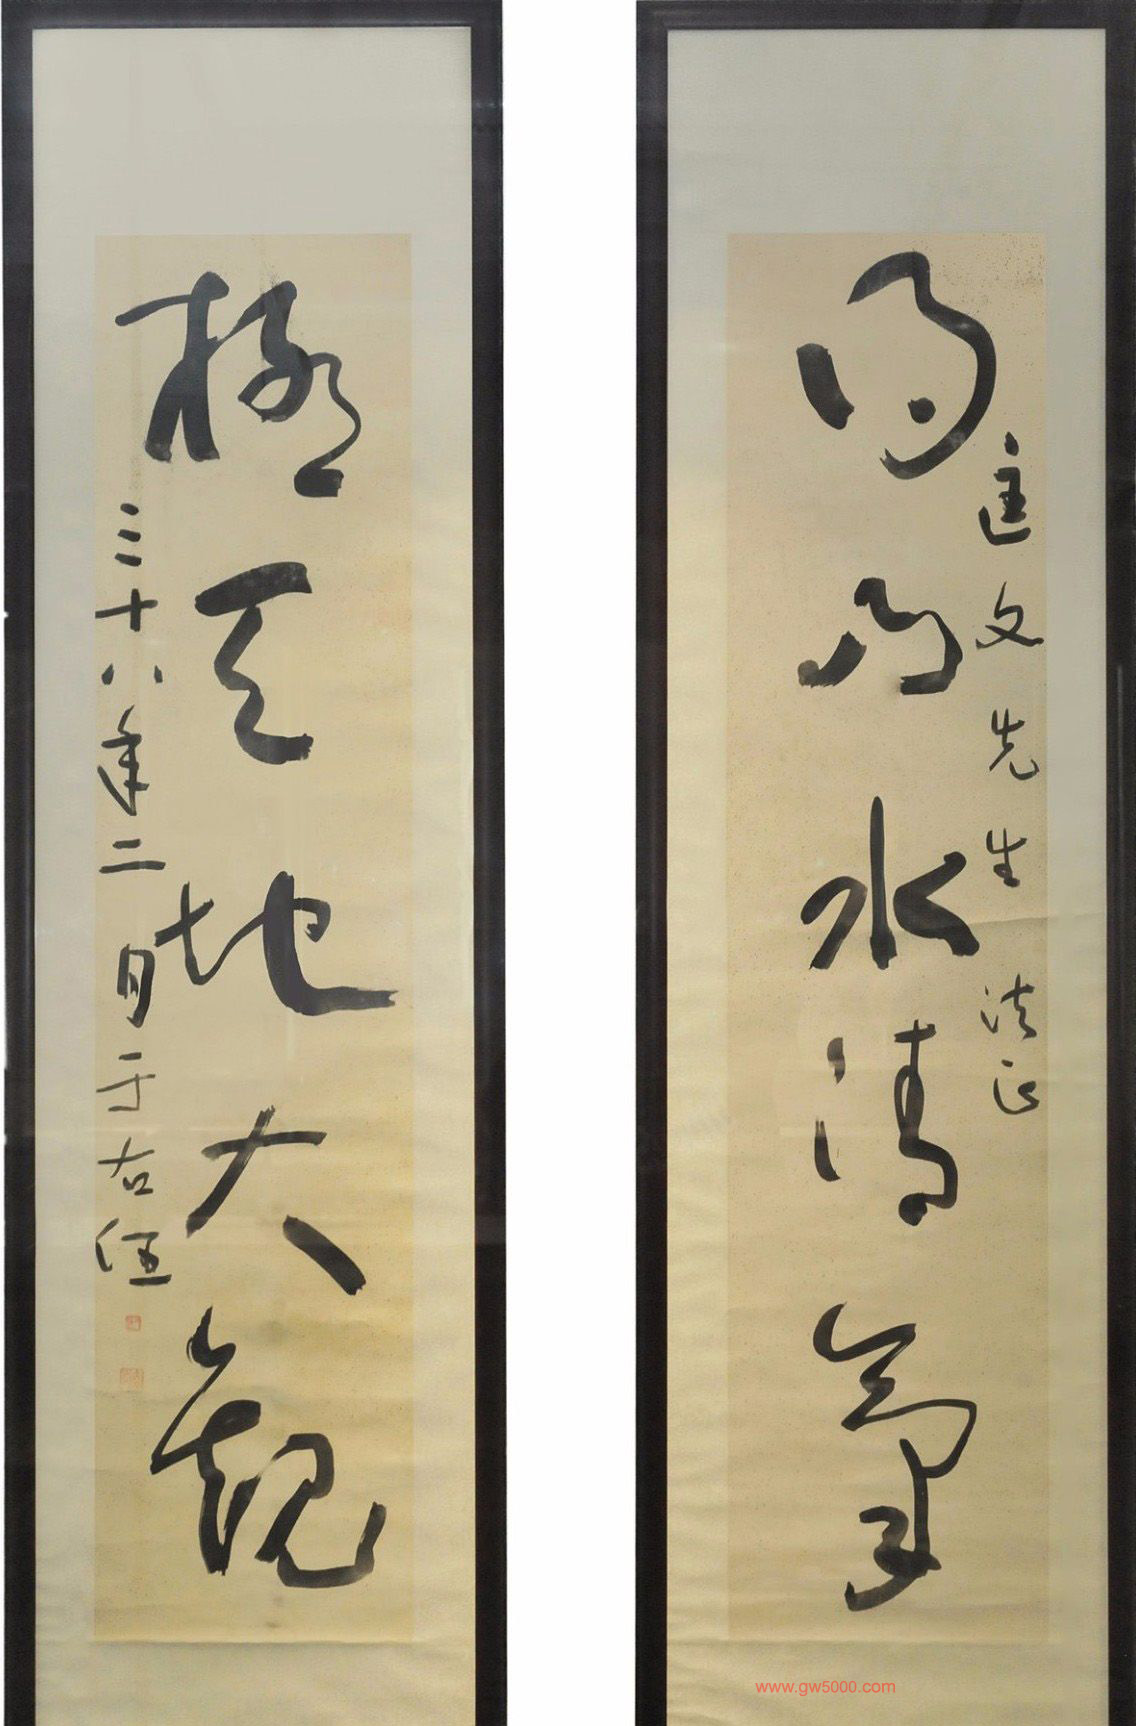 匡文先生 法正
得山水清氣
極天地大觀
三十八年二月 于右任
www.gw5000.com